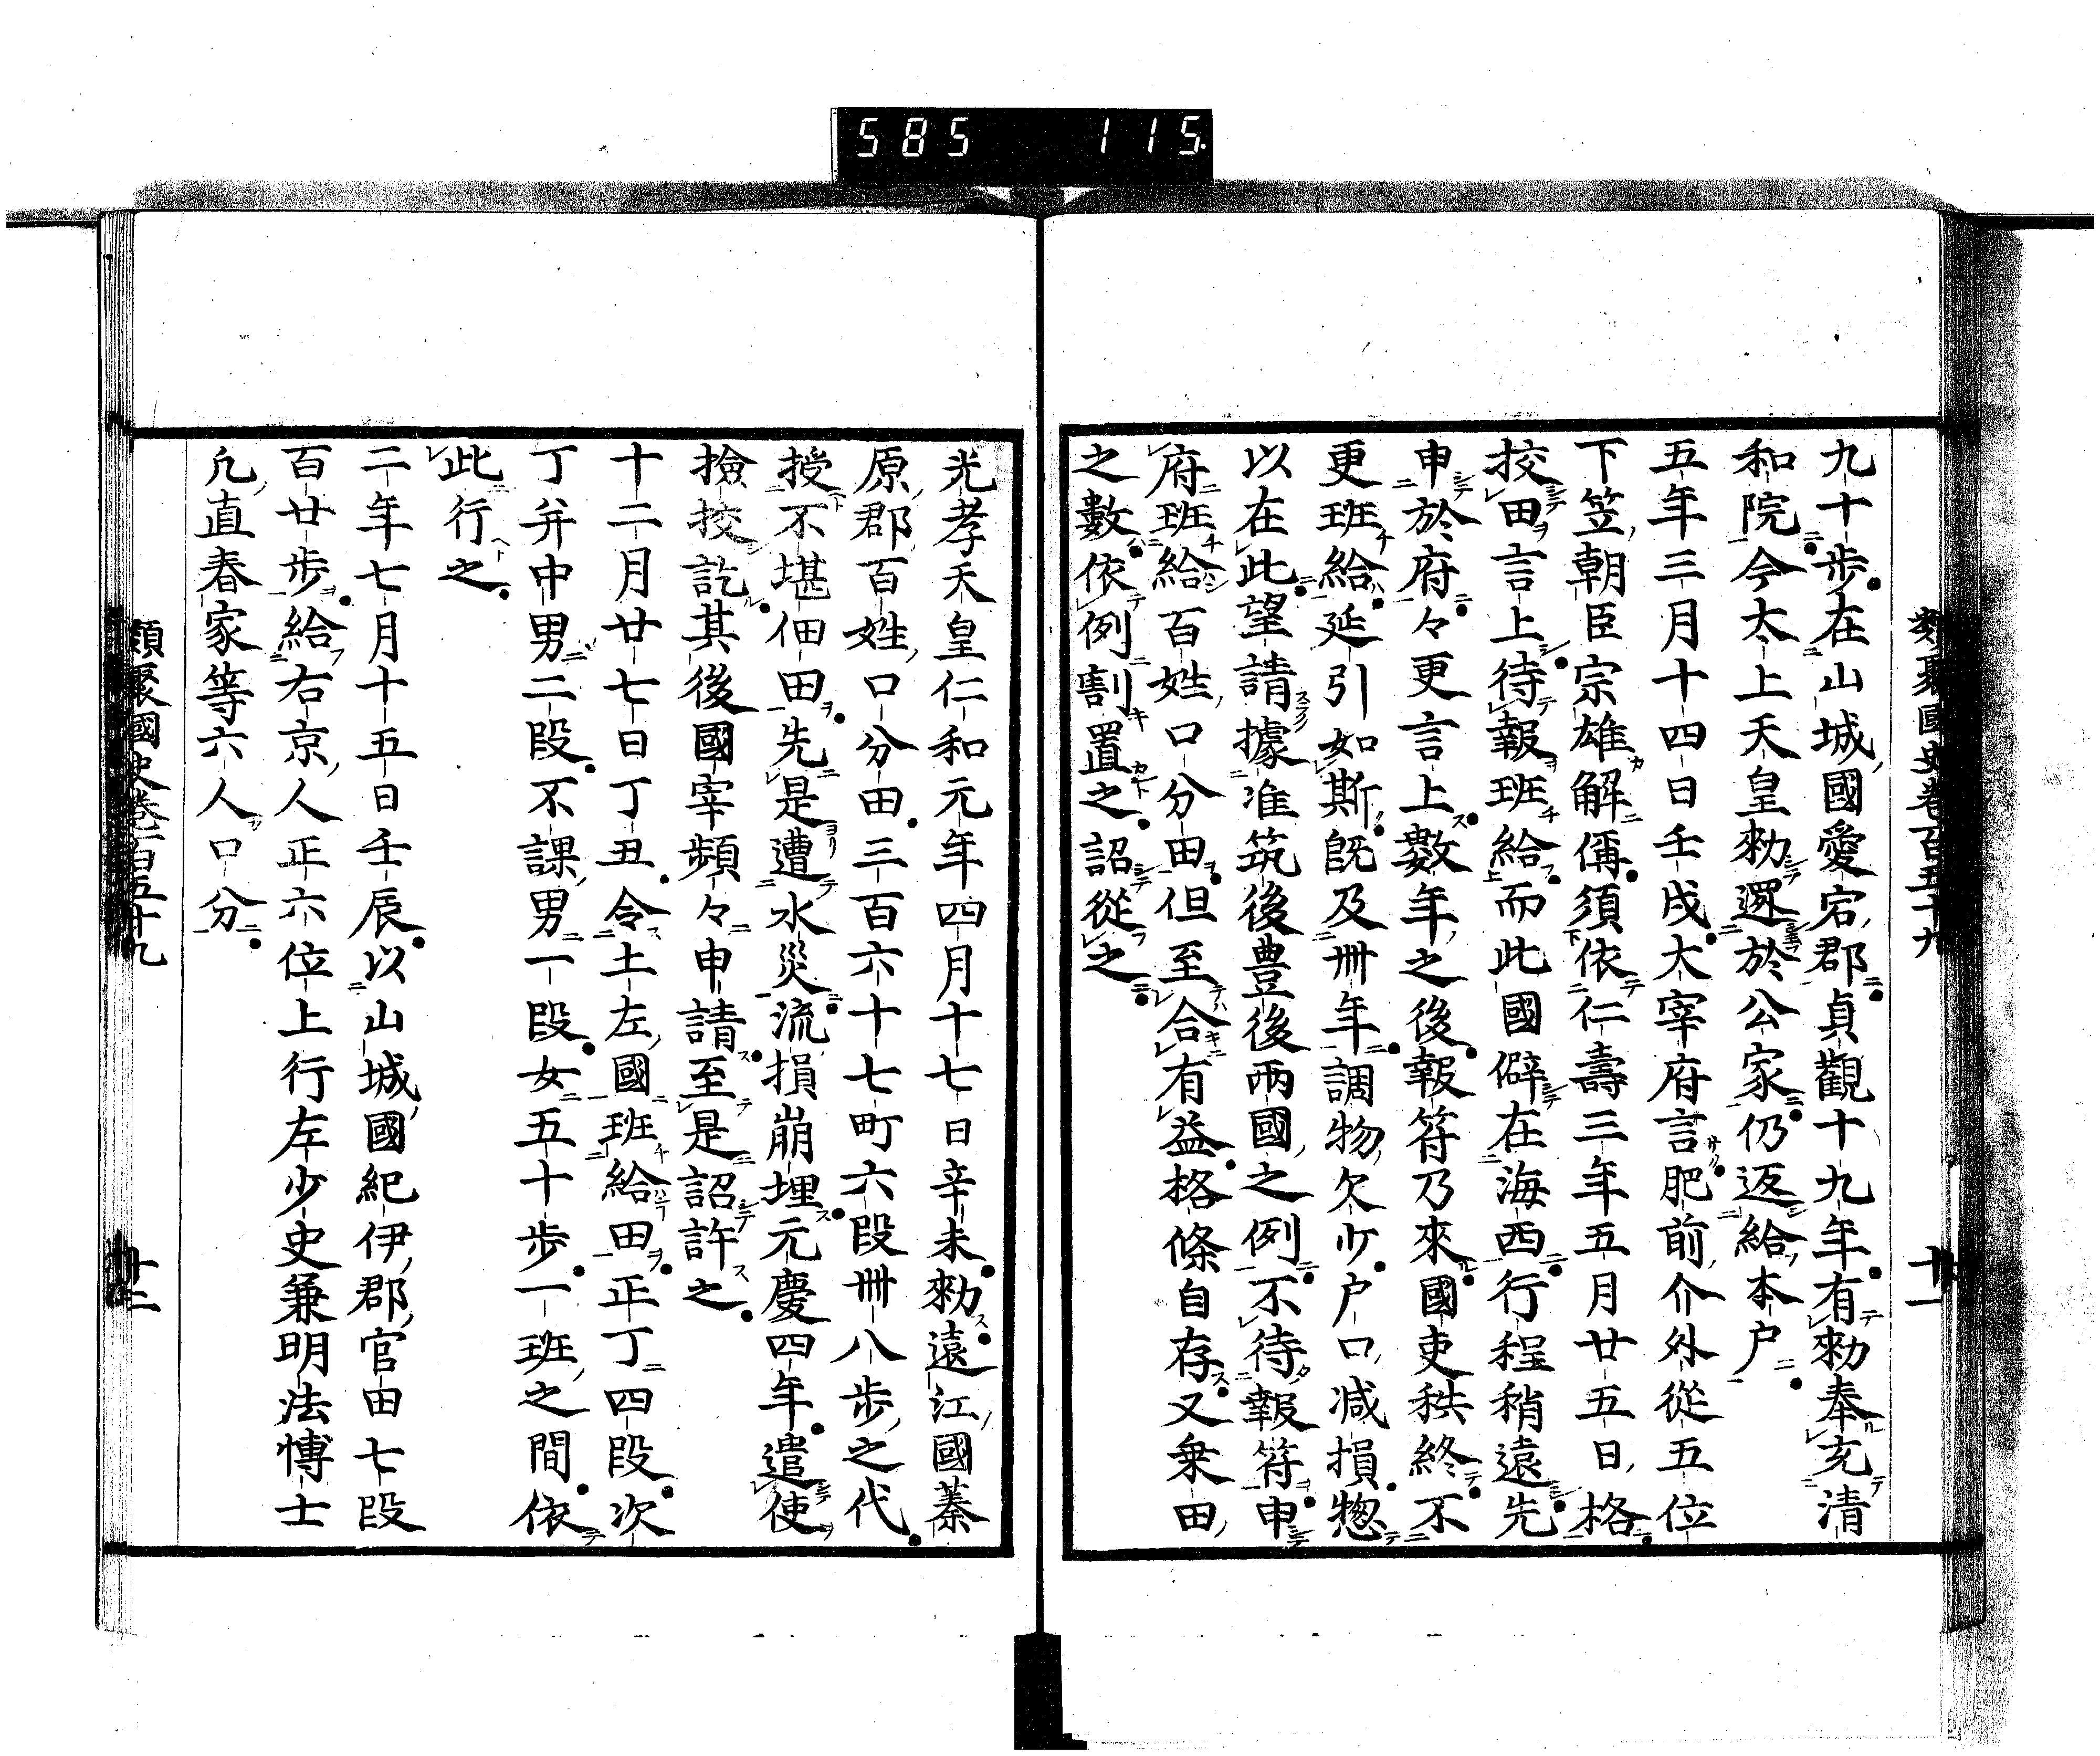 585 115
類聚國史卷百五十九
十一
九十歩在山城國愛宕郡貞觀十九年有勅奉充清
和院今太上天皇勅還於公家仍返給本户
五年三月十四日壬戌大宰府言肥前介外從五位
下笠朝臣宗雄解偁須依仁壽三年五月廿五日格
挍田言上待報班給而此國僻在海西行程稍遠先
申於府々更言上數年之後報符乃來國吏秩終不
更班給延引如斯既及卌年調物欠少户口減損惣
以在此望請據准筑後豊後兩國之例不待報符申
府班給百姓口分田但至合有益格條自存又乗田
之數依例割置之詔從之
光孝天皇仁和元年四月十七日辛未勅遠江國蓁
原郡百姓口分田三百六十七町六段卌八歩之代
授不堪佃田先是遭水災流損崩埋元慶四年遣使
撿挍訖其後國宰頻々申請至是詔許之
十二月廿七日丁丑令土左國班給田正丁四段次
丁并中男二段不課男一段女五十歩一班之間依
此行之
二年七月十五日壬辰以山城國紀伊郡官田七段
百廿歩給右京人正六位上行左少史兼明法博士
凡直春家等六人口分
類聚國史卷百五十九
十二